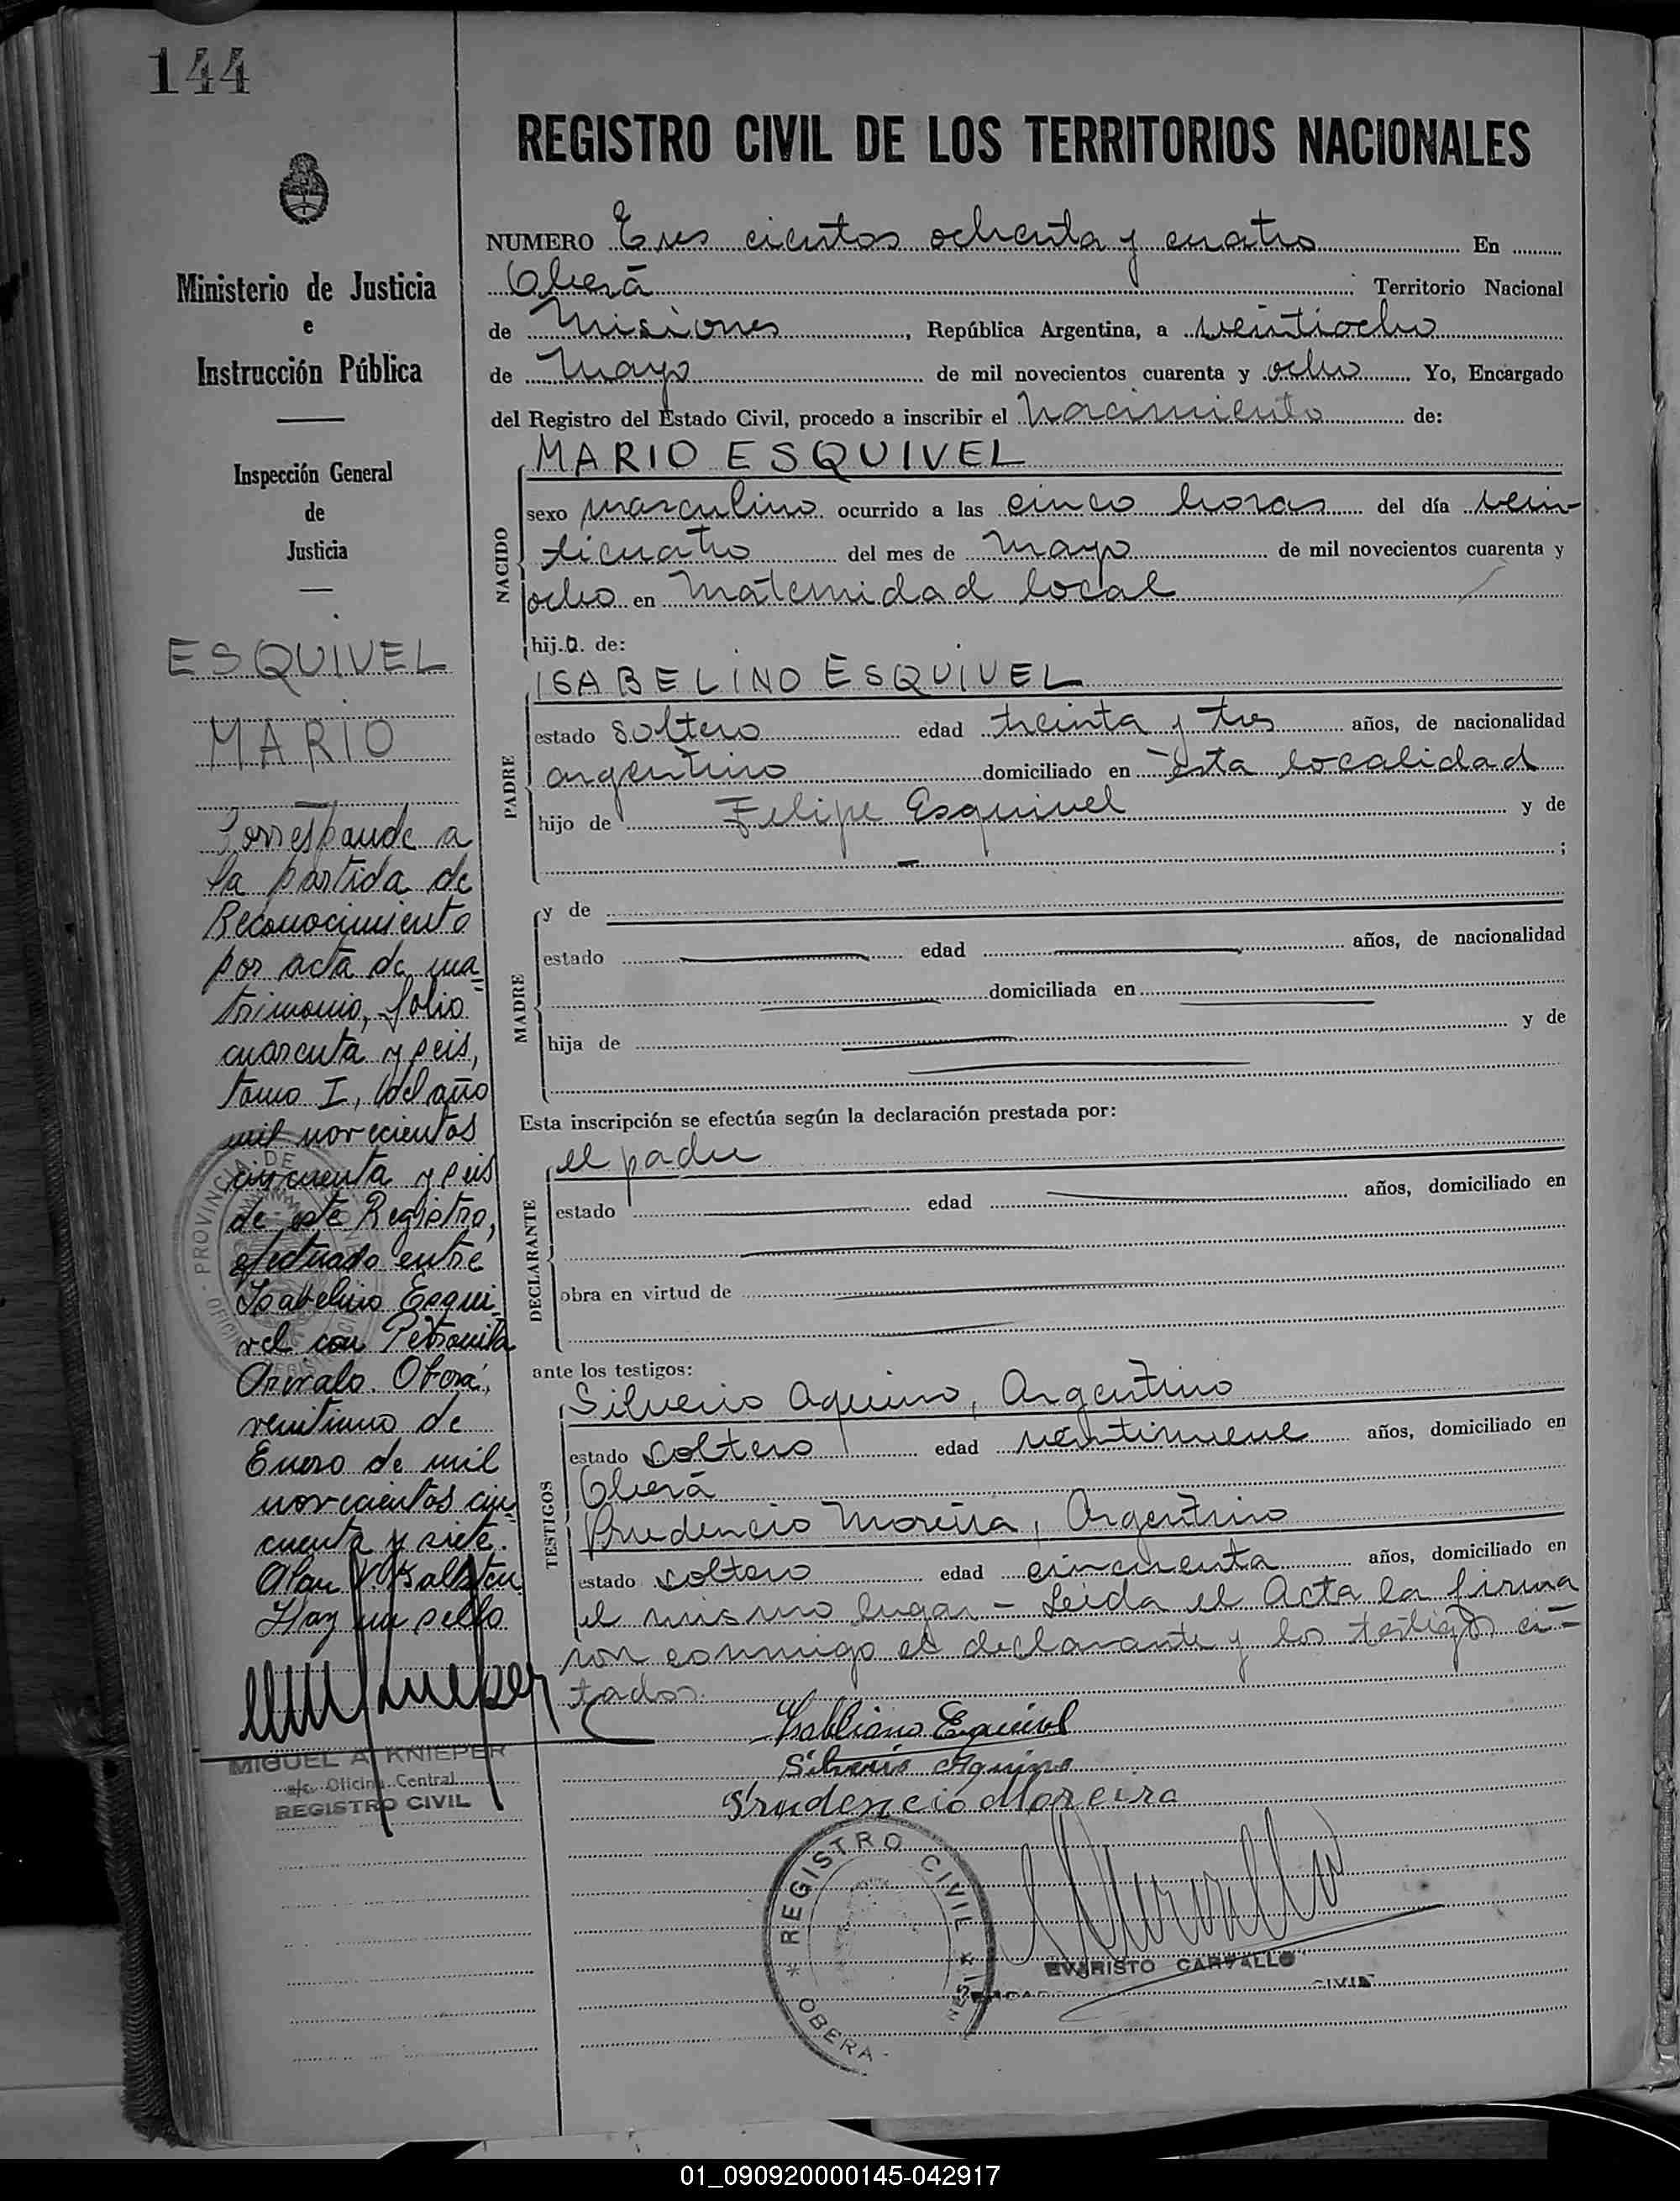 144
REGISTRO CIVIL DE LOS TERRITORIOS NACIONALES
Ministerio de Justicia
e
Instrucción Pública
Inspección General
de
Justicia
ESQUIVEL
MARIO
Corresponde a
la partida de
Reconocimiento
por acta de ma
trimonio, folio
cuarenta y seis,
tomo I, del año
mil novecientos
cincuenta y seis
de este Registro,
efectuado entre
Isabelino Esqui
vel con Petronila
Oberá,
de
Enero de mil
novecientos cin
cuenta y siete.
Hay un sello
MIGUEL A. KNIEPER
a/c. Oficina Central
REGISTRO CIVIL
PROVINCIA DE
NUMERO Tres cientos ochenta y cuatro En
Oberá Territorio Nacional
de Misiones, República Argentina, a veintiocho
de Mayo de mil novecientos cuarenta y ocho Yo, Encargado
del Registro del Estado Civil, procedo a inscribir el Nacimiento de:
MARIO ESQUIVEL
NACIDO
sexo masculino ocurrido a las cinco horas del día vein
ticuatro del mes de Mayo de mil novecientos cuarenta y
ocho en Maternidad local
hij.o. de:
ISABELINO ESQUIVEL
PADRE
estado soltero edad treinta y tres años, de nacionalidad
argentino domiciliado en ésta localidad
hijo de Felipe Esquivel y de
;
MADRE
y de
estado edad años, de nacionalidad
domiciliada en
hija de y de
Esta inscripción se efectúa según la declaración prestada por:
el padre
DECLARANTE
estado edad años, domiciliado en
obra en virtud de
ante los testigos:
TESTIGOS
Silverio Aquino, Argentino
estado soltero edad veintinueve años, domiciliado en
Oberá
Prudencio Moreira, Argentino
estado soltero edad cincuenta años, domiciliado en
el mismo lugar - Leida el Acta la firma
ron conmigo el declarante y los testigos ci-
tados.
Esquivel
Silverio Aquino
Prudencio Moreira
REGISTRO CIVIL
OBERA
EVARISTO CARVALLO
01_090920000145-042917